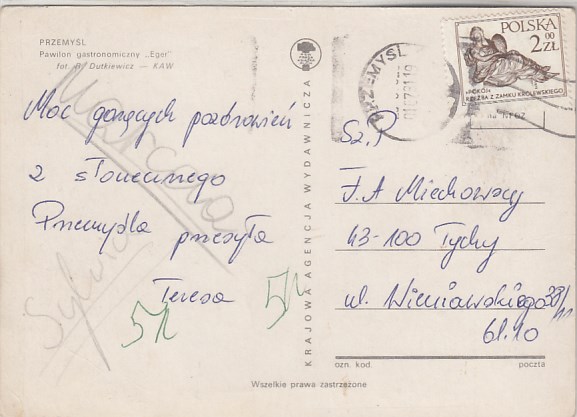 PRZEMYŚL
Pawilon gastronomiczny „Eger"
fot. B. Dutkiewicz — KAW
Moc gorących pozdrowień
z słonecznego
Przemyśla przesyła
Teresa
Marcela
Sylwia
51
51
KRAJOWA AGENCJA WYDAWNICZA
POLSKA
2 00 ZŁ
«POKÓJ»
RZEŹBA Z ZAMKU KRÓLEWSKIEGO
PRZEMYŚL
Sz. P
J. A Miechowscy
43-100 Tychy
ul. Wieniawskiego 38/
bl. 10
ozn. kod.
poczta
Wszelkie prawa zastrzeżone